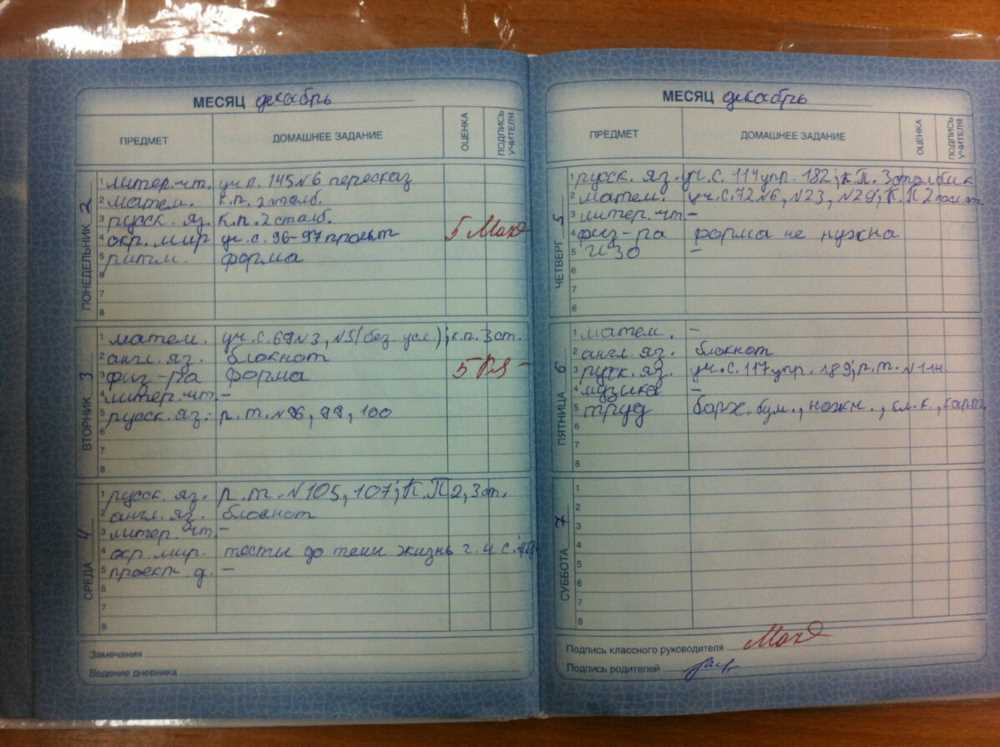 МЕСЯЦ декабрь
ПРЕДМЕТ ДОМАШНЕЕ ЗАДАНИЕ ОЦЕНКА ПОДПИСЬ УЧИТЕЛЯ
ПОНЕДЕЛЬНИК 2
1 литер. чт. уч. 145 №6 пересказ
2 матем. к.п. 2 столб.
3 русск. яз. к.п. 2 столб.
4 окр. мир уч. с. 96-97 проект 5
5 ритм. форма
6
7
8
ВТОРНИК 3
1 матем. уч. с. 69 №3, №5 (без усл.); к.п. 3 ст.
2 англ. яз. блокнот
3 физ-ра форма 5
4 литер. чт. -
5 русск. яз. р.т. №96, 99, 100
6
7
8
СРЕДА 4
1 русск. яз. р.т. №105, 107; К.П 2, 3 ст.
2 англ. яз. блокнот
3 литер. чт. -
4 окр. мир. тесты до темы жизнь г. и с.
5 проект. д. -
6
7
8
Замечания
Ведение дневника
МЕСЯЦ декабрь
ПРЕДМЕТ ДОМАШНЕЕ ЗАДАНИЕ ОЦЕНКА ПОДПИСЬ УЧИТЕЛЯ
ЧЕТВЕРГ 5
1 русск. яз. уч. с. 114 упр. 182; К.П. 3 столбик
2 матем. уч. с. 72 №6, №23, №29; К.П 2
3 литер. чт. -
4 физ-ра форма не нужна
5 ИЗО -
6
7
8
ПЯТНИЦА 6
1 матем. -
2 англ. яз. блокнот
3 русск. яз. уч. с. 117 упр. 189; р.т.
4 музыка -
5 труд барх. бум., ножн., кл. к.,
6
7
8
СУББОТА 7
1
2
3
4
5
6
7
8
Подпись классного руководителя
Подпись родителей